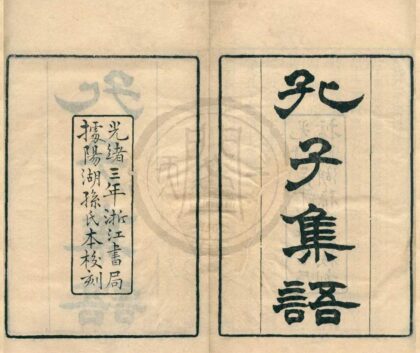 孔子集語
光緒三年浙江書局
據陽湖孫氏本校刻